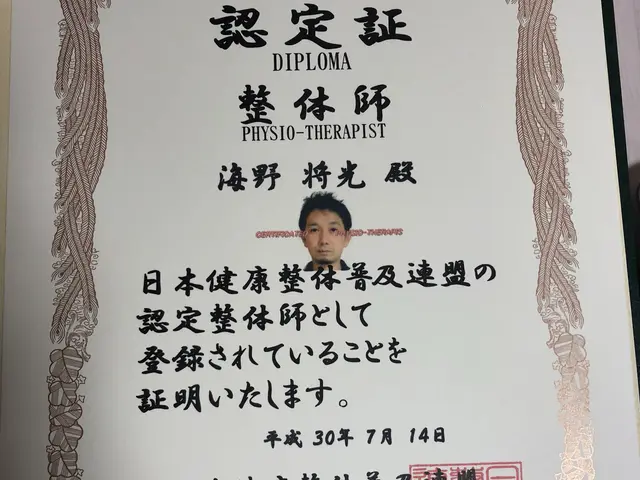 認定証
DIPLOMA
整体師
PHYSIO-THERAPIST
海野 将光 殿
日本健康整体普及連盟の
認定整体師として
登録されていることを
証明いたします。
平成 30年 7月 14日